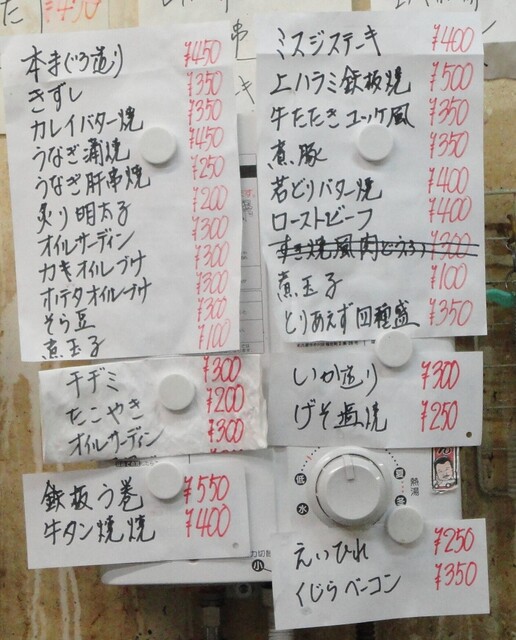 本まぐろ造り ¥450
きずし ¥350
カレイバター焼 ¥350
うなぎ蒲焼 ¥450
うなぎ肝串焼 ¥250
炙り明太子 ¥200
オイルサーディン ¥300
カキオイルづけ ¥300
ホテタオイルづけ ¥300
そら豆 ¥300
煮玉子 ¥100
チヂミ ¥300
たこやき ¥200
オイルサーディン ¥300
鉄板う巻 ¥550
牛タン焼焼 ¥400
ミスジステーキ ¥400
上ハラミ鉄板焼 ¥500
牛たたきユッケ風 ¥350
煮豚 ¥350
若どりバター焼 ¥400
ローストビーフ ¥400
すき焼風肉どうふ ¥300
煮玉子 ¥100
とりあえず四種盛 ¥350
いか造り ¥300
げそ塩焼 ¥250
低
水
熱湯
えいひれ ¥250
くじらベーコン ¥350
小